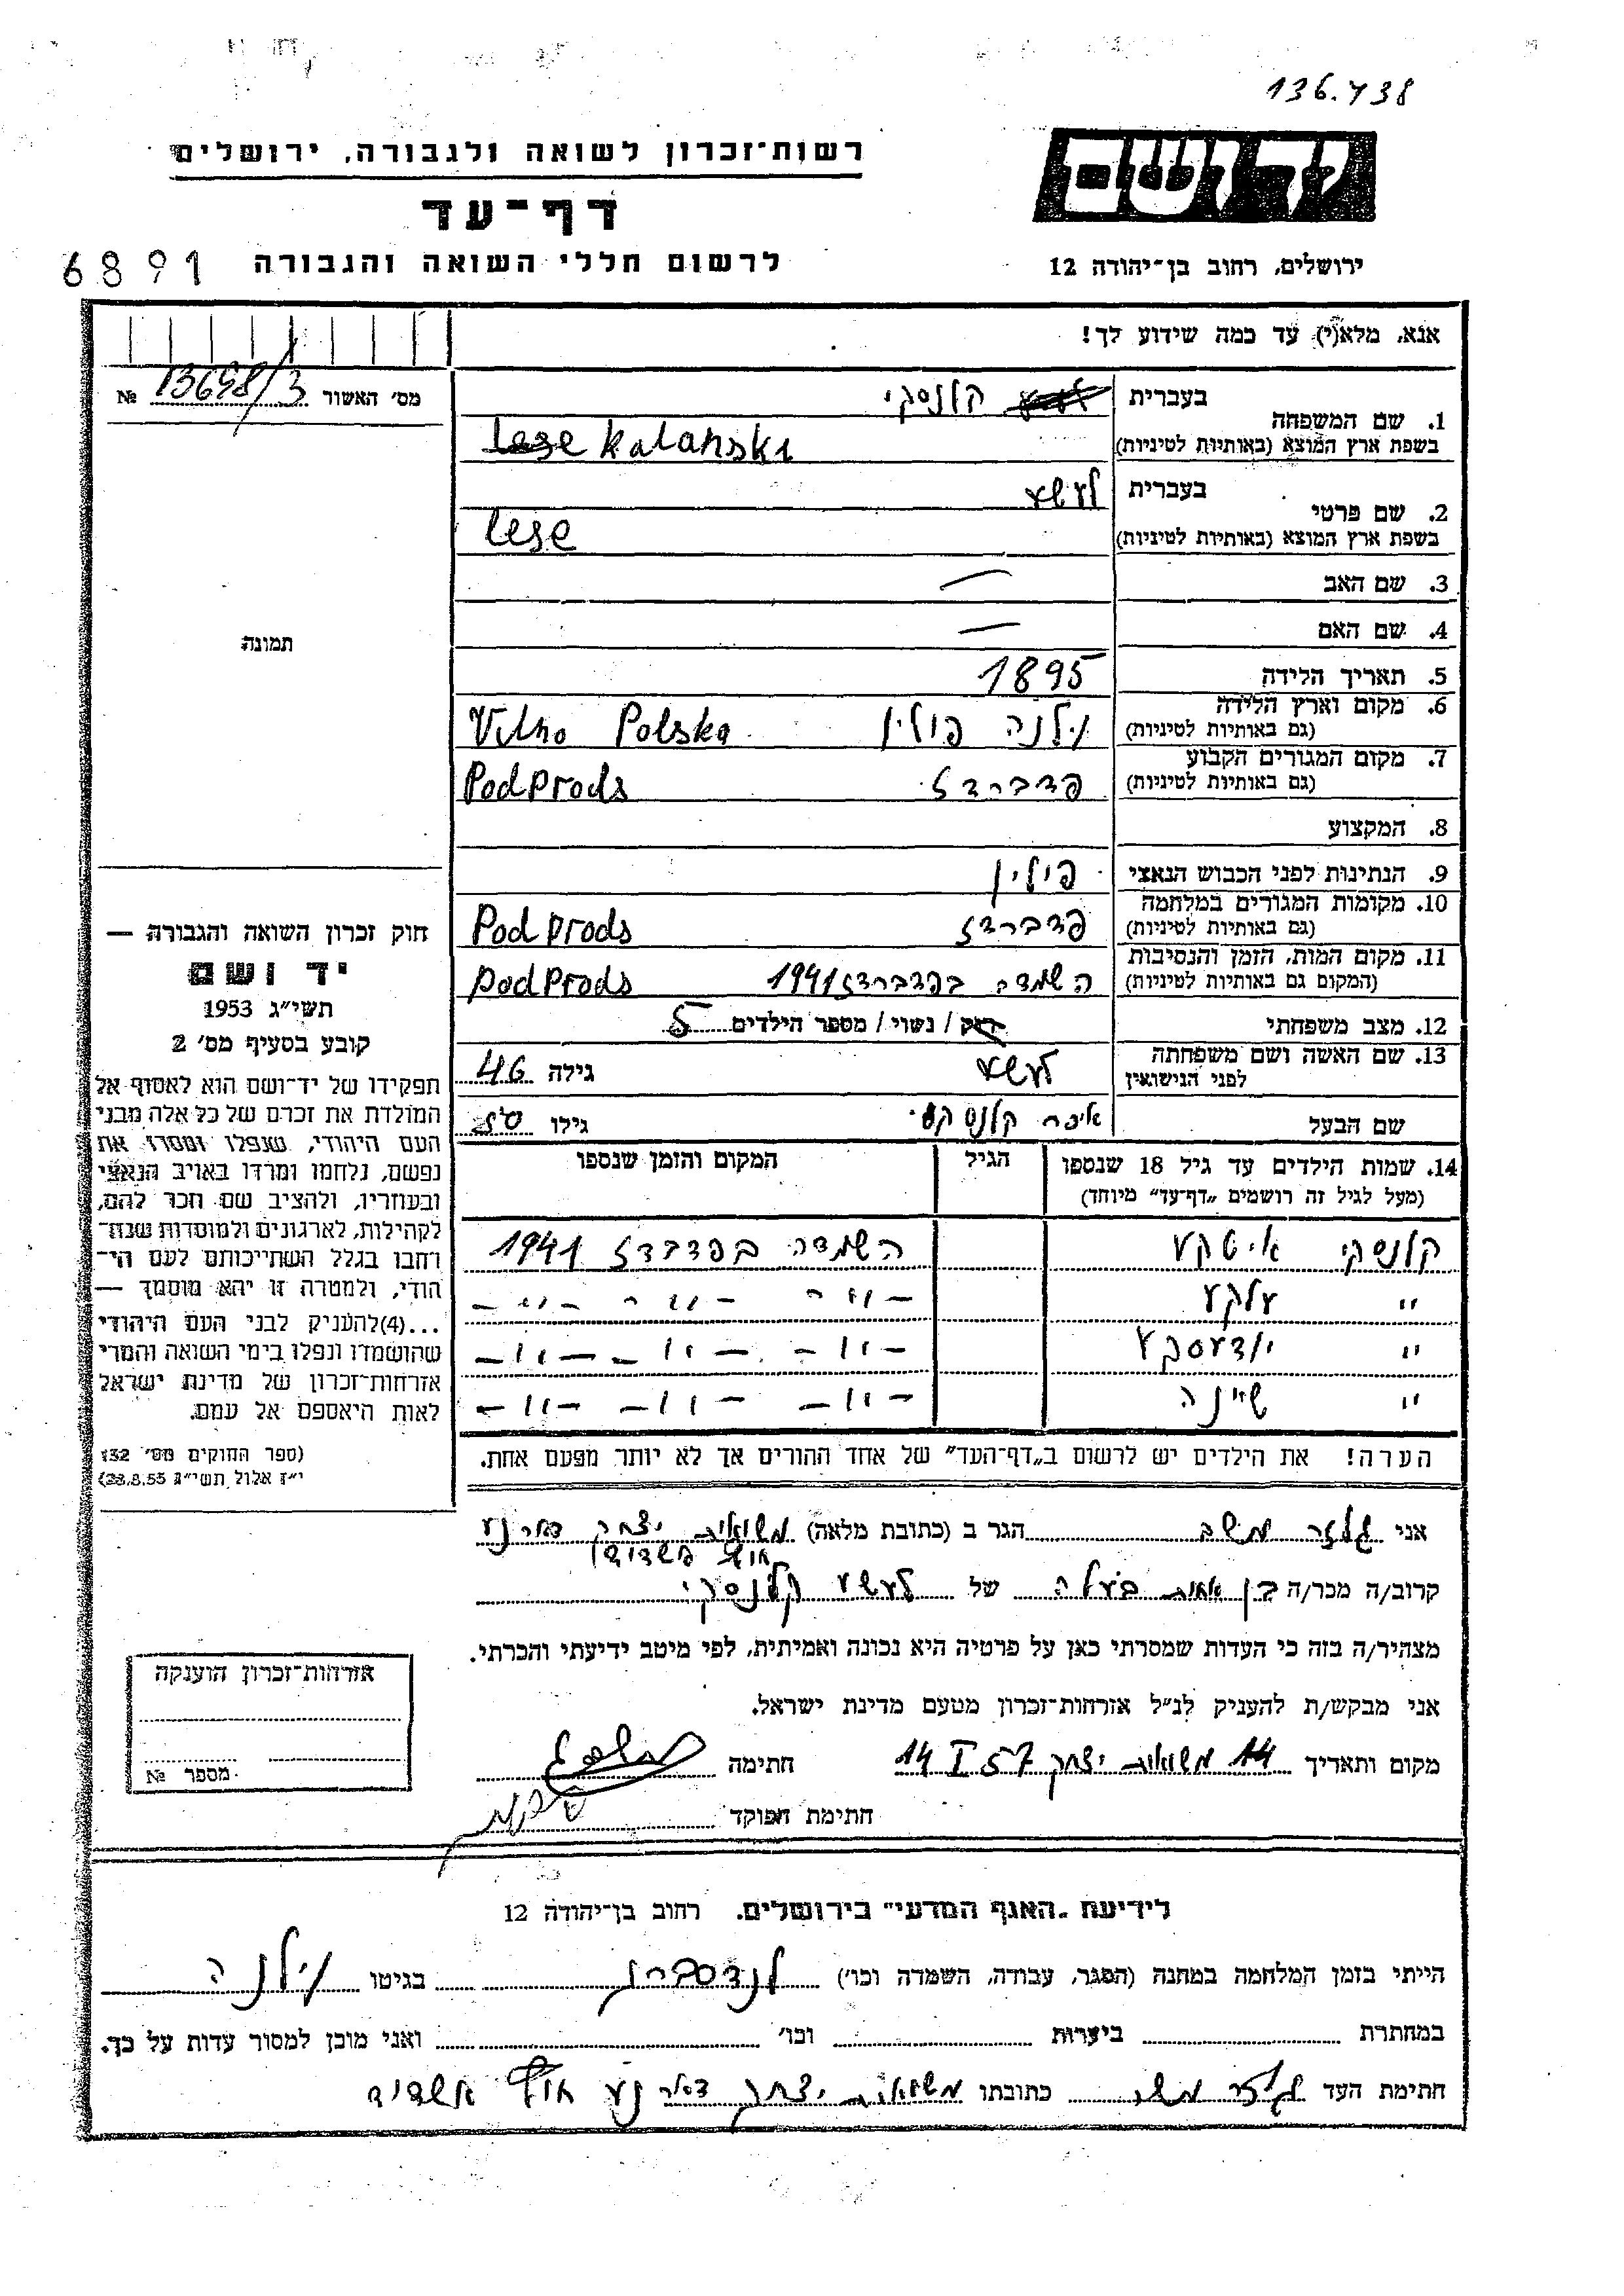 136.738
רשות־זכרון לשואה ולגבורה, ירושלים
יד ושם
דף־עד
לרשום חללי השואה והגבורה
6891
ירושלים, רחוב בן־יהודה 12
אנא, מלא(י) עד כמה שידוע לך!
מס׳ האשור 13698/3 №
1. שם המשפחה
בעברית קלנסקי
בשפת ארץ המוצא (באותיות לטיניות) Kalanski
2. שם פרטי
בעברית לעשע
בשפת ארץ המוצא (באותיות לטיניות) Lese
3. שם האב —
4. שם האם —
תמונה
5. תאריך הלידה 1895
6. מקום וארץ הלידה
(גם באותיות לטיניות) וילנה פולין Vilno Polska
7. מקום המגורים הקבוע
(גם באותיות לטיניות) פדברדז Podprods
8. המקצוע
9. הנתינות לפני הכבוש הנאצי פולין
10. מקומות המגורים במלחמה
(גם באותיות לטיניות) פדברדז Podprods
11. מקום המות, הזמן והנסיבות
(המקום גם באותיות לטיניות) השמדה בפדברדז 1941 Podprods
12. מצב משפחתי רוק / נשוי / מספר הילדים 5
13. שם האשה ושם משפחתה
לפני הנישואין לעשע גילה 46
שם הבעל קלנסקי גילו 50
14. שמות הילדים עד גיל 18 שנספו
(מעל לגיל זה רושמים „דף־עד״ מיוחד)
הגיל
המקום והזמן שנספו
קלנסקי איטקע השמדה בפדברדז 1941
״ עלקע — ״ — ״ — ״ —
״ יודעסקע — ״ — ״ — ״ —
״ שיינה — ״ — ״ — ״ —
הערה! את הילדים יש לרשום ב„דף־העד״ של אחד ההורים אך לא יותר מפעם אחת.
חוק זכרון השואה והגבורה —
יד ושם
תשי״ג 1953
קובע בסעיף מס׳ 2
תפקידו של יד־ושם הוא לאסוף אל
המולדת את זכרם של כל אלה מבני
העם היהודי, שנפלו ומסרו את
נפשם, נלחמו ומרדו באויב הנאצי
ובעוזריו, ולהציב שם וזכר להם,
לקהילות, לארגונים ולמוסדות שנח־
רבו בגלל השתייכותם לעם הי־
הודי, ולמטרה זו יהא מוסמך —
...(4)להעניק לבני העם היהודי
שהושמדו ונפלו בימי השואה והמרי
אזרחות־זכרון של מדינת ישראל
לאות היאספם אל עמם.
(ספר החוקים מס׳ 132
י״ז אלול תשי״ג 28.8.53)
אני גלזר משה הגר ב (כתובת מלאה) משואות יצחק דאר נע
חוף אשדוד
קרוב/ה מכר/ה בן אחות בעלה של לעשע קלנסקי
מצהיר/ה בזה כי העדות שמסרתי כאן על פרטיה היא נכונה ואמיתית, לפי מיטב ידיעתי והכרתי.
אני מבקש/ת להעניק לנ״ל אזרחות־זכרון מטעם מדינת ישראל.
מקום ותאריך משואות יצחק 14 I 57 חתימה
חתימת הפוקד
אזרחות־זכרון הוענקה
מספר №
לידיעת „האגף המדעי״ בירושלים, רחוב בן־יהודה 12
הייתי בזמן המלחמה במחנה (הסגר, עבודה, השמדה וכו׳) לנדסברג בגיטו וילנה
במחתרת ביערות וכו׳ ואני מוכן למסור עדות על כך.
חתימת העד גלזר משה כתובתו משואות יצחק דאר נע חוף אשדוד